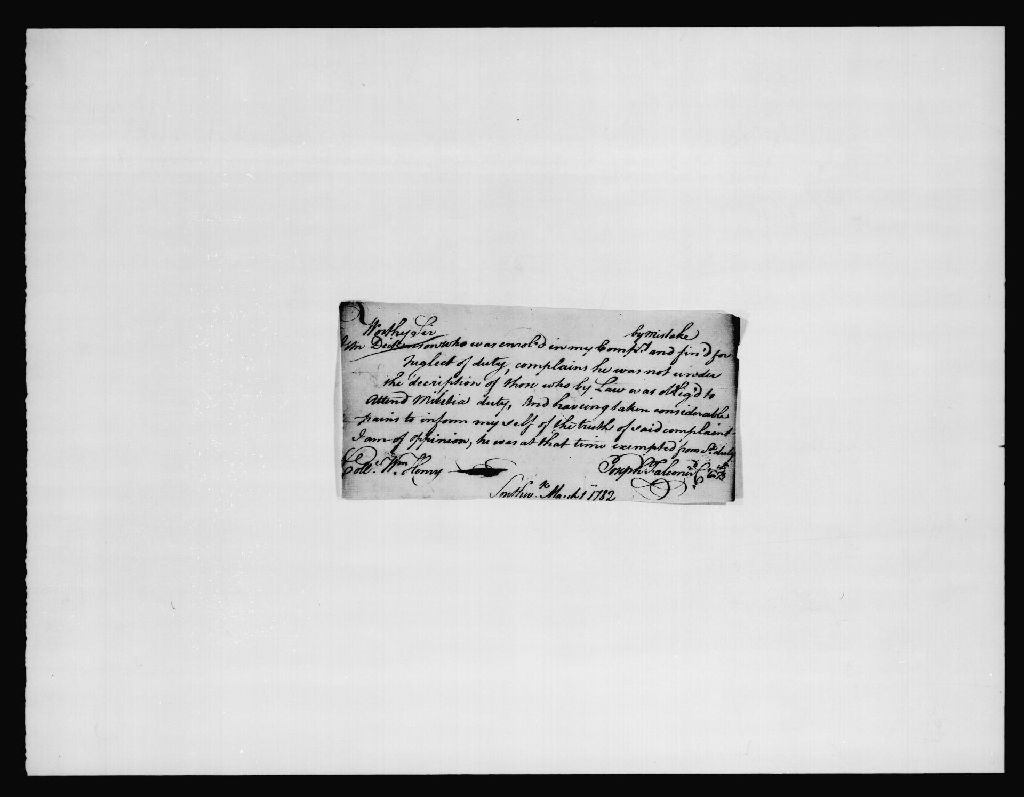 Worthy Sir
by mistake
Wm Dickenson who was enrol'd in my Compy. and fin'd for
Neglect of duty, complains he was not under
the decription of thos who by Law was oblig'd to
Attend Militia duty, And having taken considerable
pains to inform my self of the truth of said complaint
I am of oppinion, he was at that time exempted from Sd. duty
Coll. Wm. Henry
Joseph Falconer Capt
Southwk. March 1 1782